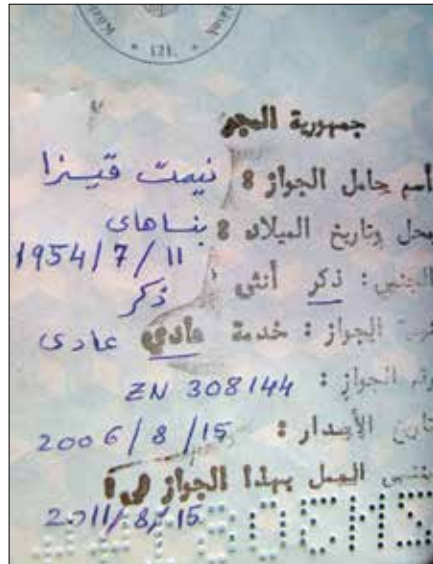 * 121. *
جمهورية المجر
أسم حامل الجواز 8 نيمت قيزا
محل وتاريخ الميلاد 8 بناهاى
1954/7/11
الجنس: ذكر أنثى
ذكر
الجواز: خدمة عادي عادى
رقم الجواز: ZN 308144
تاريخ الأصدار: 2006/8/15
ينتهي العمل بهذا الجواز في
2011/8/15